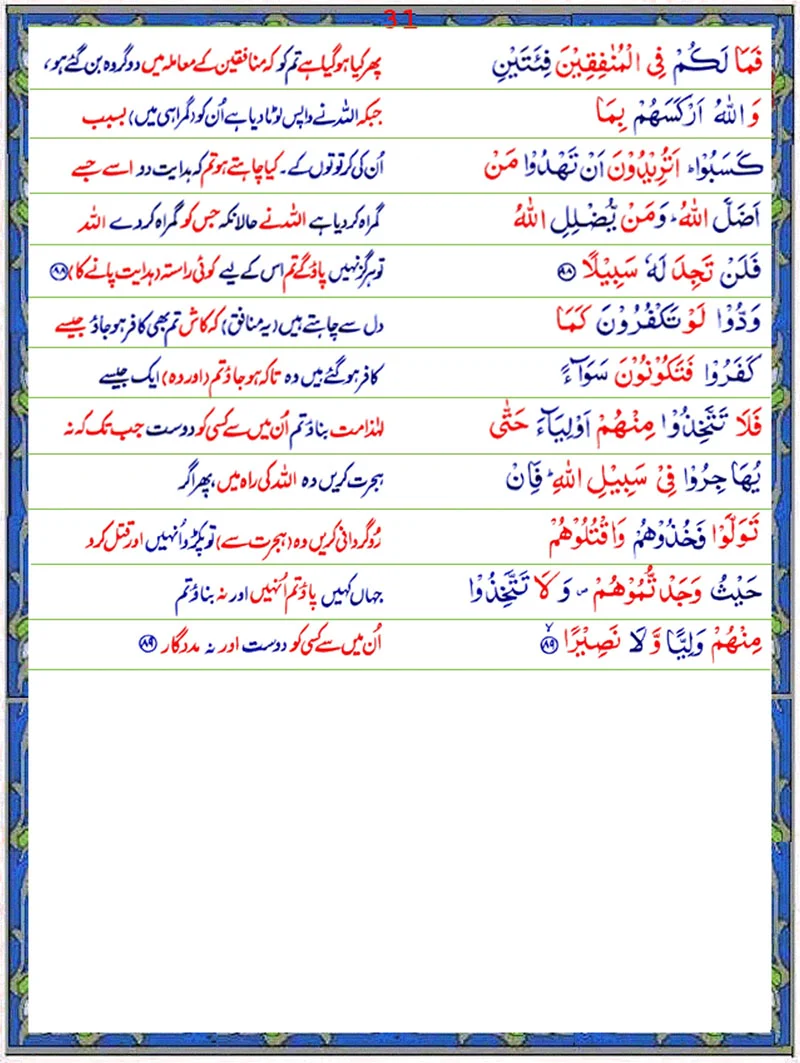 31
فَمَا لَكُمْ فِى الْمُنٰفِقِيْنَ فِئَتَيْنِ پھر کیا ہوگیا ہے تم کو کہ منافقین کے معاملہ میں دو گروہ بن گئے ہو،
وَاللّٰهُ اَرْكَسَهُمْ بِمَا جبکہ اللہ نے واپس لوٹا دیا ہے اُن کو (گمراہی میں) بسبب
كَسَبُوْا ؕ اَتُرِيْدُوْنَ اَنْ تَهْدُوْا مَنْ اُن کی کرتوتوں کے۔ کیا چاہتے ہو تم کہ ہدایت دو اسے جسے
اَضَلَّ اللّٰهُ ؕ وَمَنْ يُّضْلِلِ اللّٰهُ گمراہ کردیا ہے اللہ نے حالانکہ جس کو گمراہ کردے اللہ
فَلَنْ تَجِدَ لَهٗ سَبِيْلًا ۸۸ تو ہرگز نہیں پاؤ گے تم اس کے لیے کوئی راستہ (ہدایت پانے کا) ۸۸
وَدُّوْا لَوْ تَكْفُرُوْنَ كَمَا دل سے چاہتے ہیں (یہ منافق) کہ کاش تم بھی کافر ہوجاؤ جیسے
كَفَرُوْا فَتَكُوْنُوْنَ سَوَآءً کافر ہوگئے ہیں وہ تاکہ ہوجاؤ تم (اور وہ) ایک جیسے
فَلَا تَتَّخِذُوْا مِنْهُمْ اَوْلِيَآءَ حَتّٰى لہٰذا مت بناؤ تم اُن میں سے کسی کو دوست جب تک کہ نہ
يُهَاجِرُوْا فِىْ سَبِيْلِ اللّٰهِ ؕ فَاِنْ ہجرت کریں وہ اللہ کی راہ میں، پھر اگر
تَوَلَّوْا فَخُذُوْهُمْ وَاقْتُلُوْهُمْ رُوگردانی کریں وہ (ہجرت سے) تو پکڑو اُنہیں اور قتل کرو
حَيْثُ وَجَدْتُّمُوْهُمْ ۪ وَلَا تَتَّخِذُوْا جہاں کہیں پاؤ تم اُنہیں اور نہ بناؤ تم
مِنْهُمْ وَلِيًّا وَّلَا نَصِيْرًا ۙ ۸۹ اُن میں سے کسی کو دوست اور نہ مددگار ۸۹